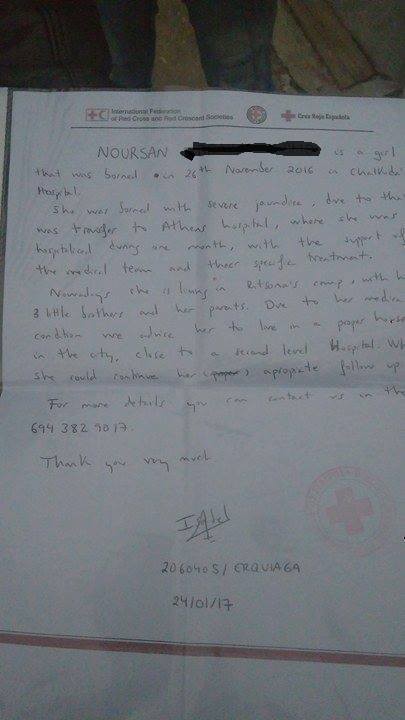 International Federation
of Red Cross and Red Crescent Societies
Cruz Roja Española
NOURSAN is a girl
that was borned in 26th November 2016 in Chalkida
Hospital.
She was borned with severe jaundice, due to that
was transfer to Athens hospital, where she was
hospitaliced during one month, with the support of
the medical team and theer specific treatment.
Nowadays she is living in Ritsona's camp, with h
3 little brothers and her parents. Due to her medica
condition we advice her to live in a proper house
in the city, close to a second level Hospital. Wh
she could continue her apropiate follow up
For more details you can contact us in the
694 382 9017.
Thank you very much
2060405/ ERQUIAGA
24/01/17